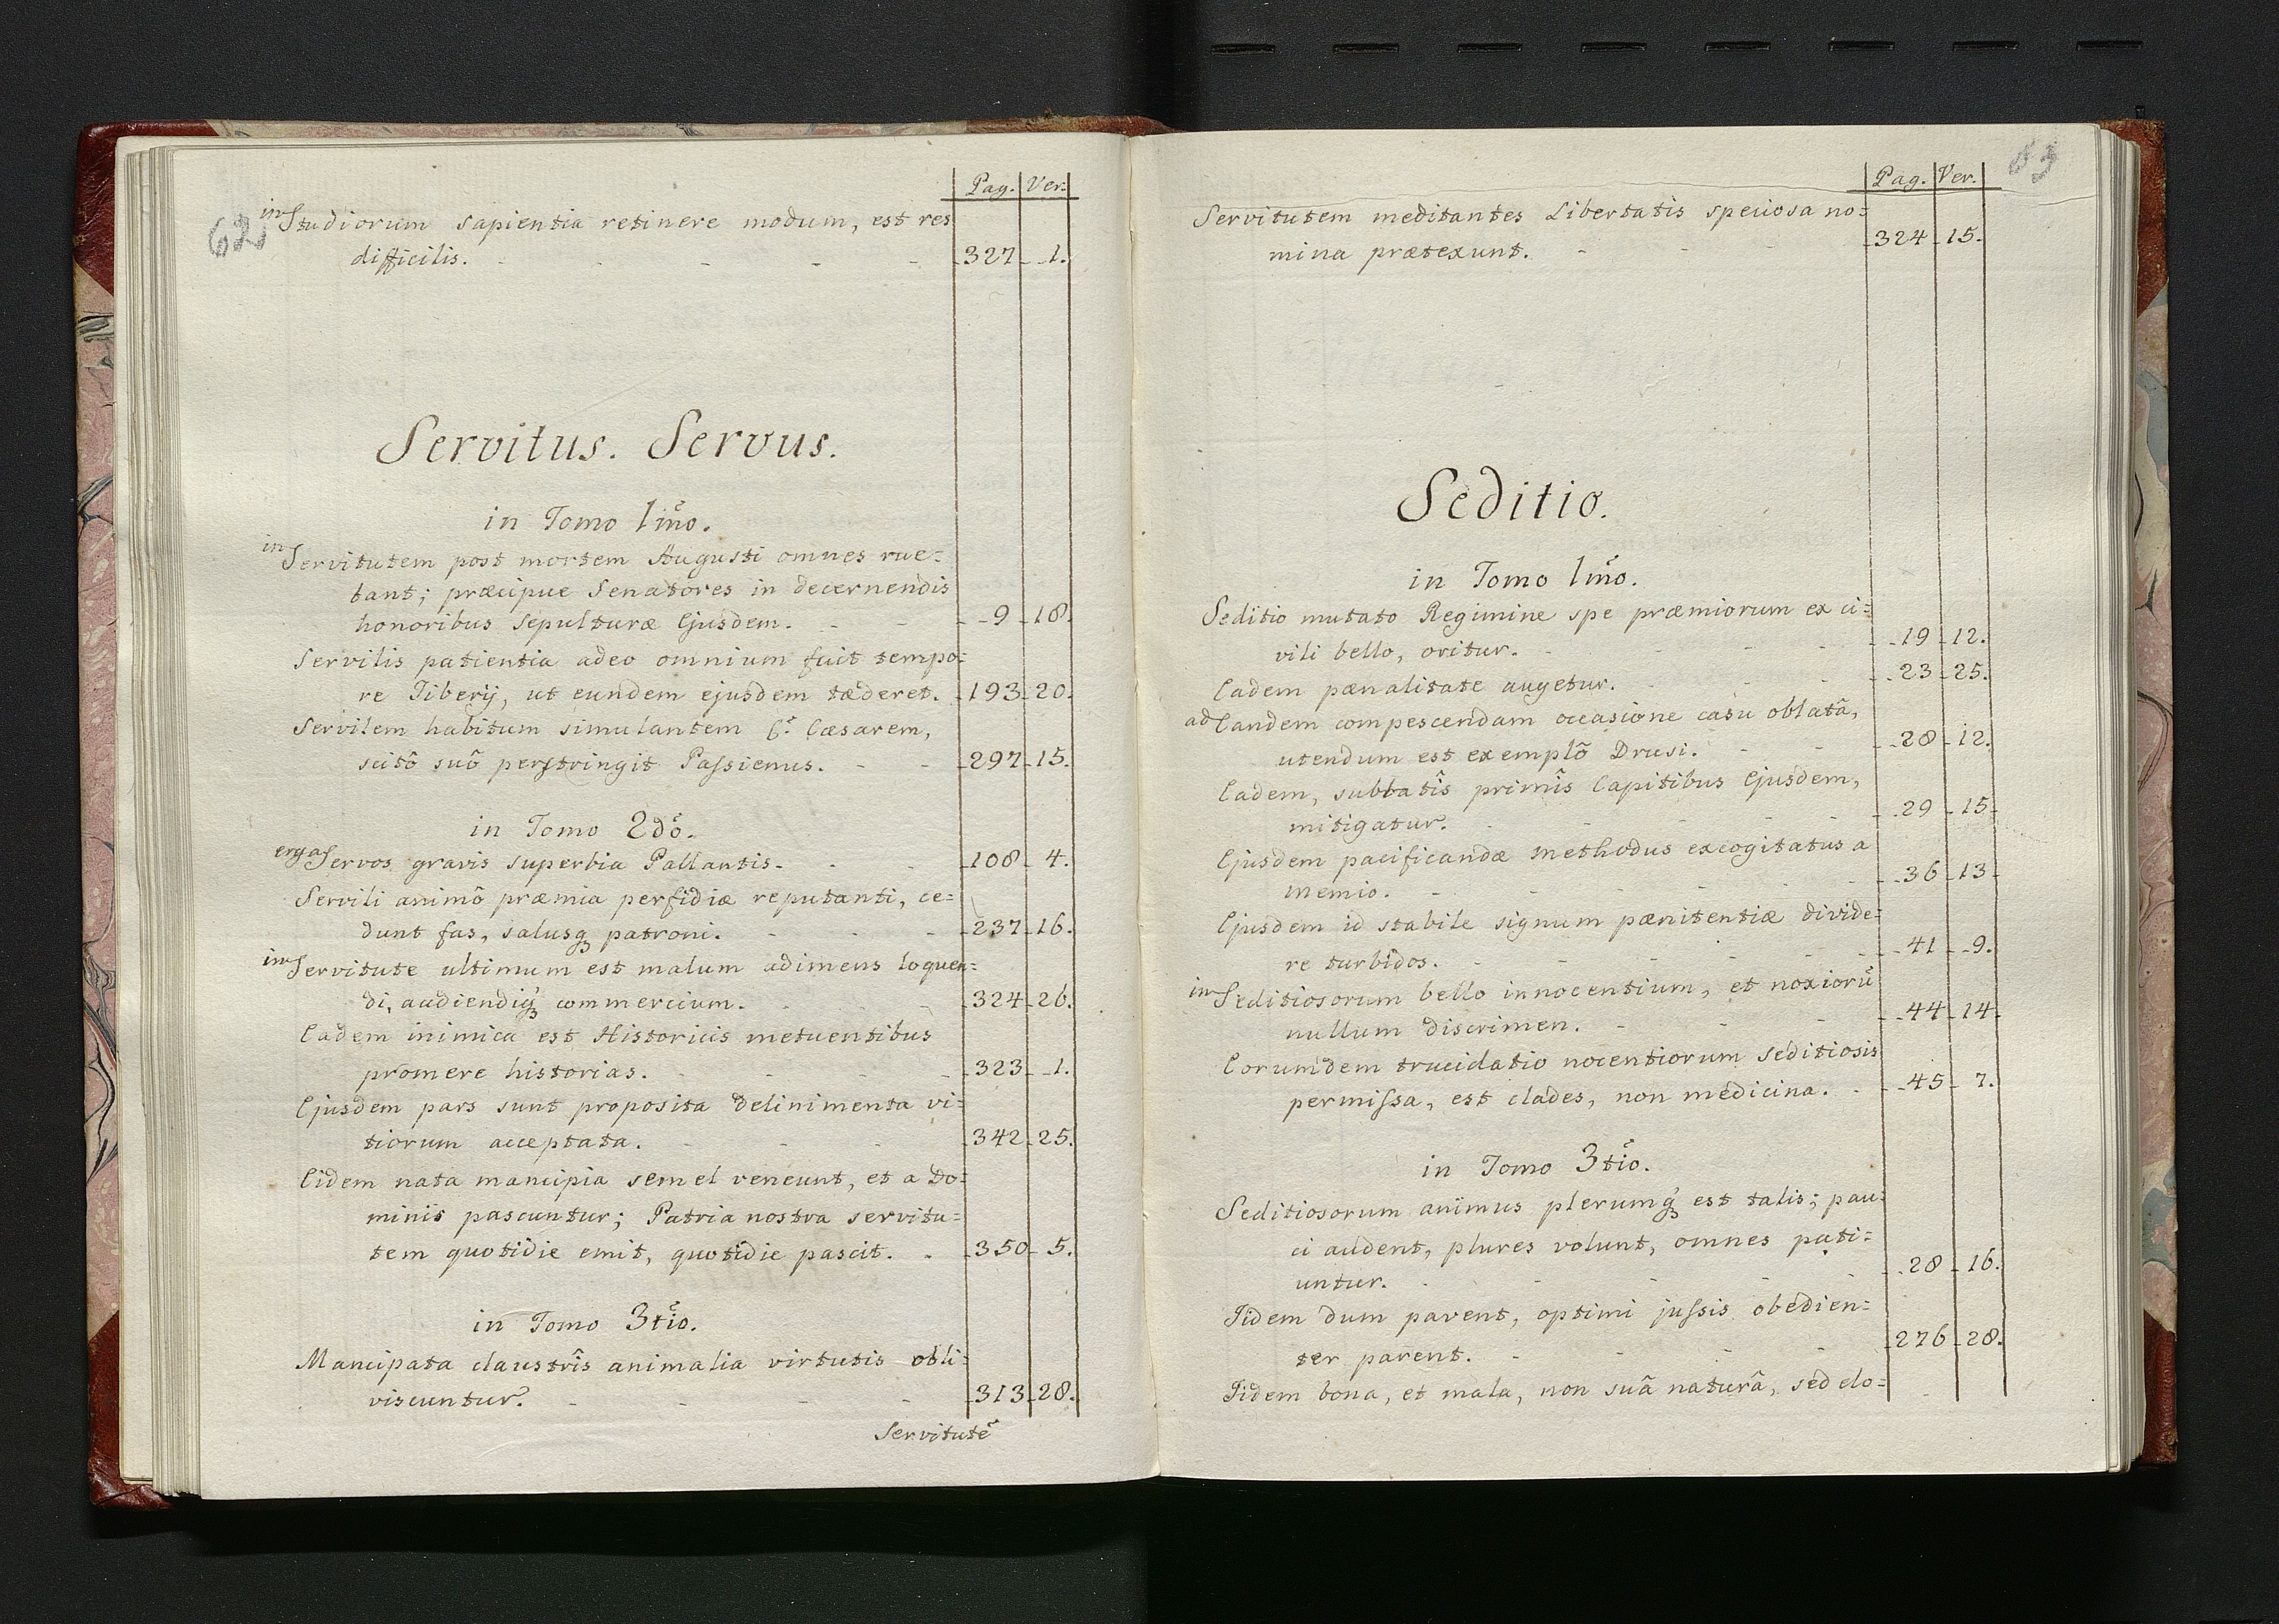 62
Pag. Ver.
in Studiorum sapientia retinere modum, est res
difficilis. 327 1.
Servitus. Servus.
in Tomo 1mo.
in Servitutem post mortem Augusti omnes rue=
bant; præcipue Senatores in decernendis
honoribus Sepulturæ Ejusdem. 9 18.
Servilis patientia adeo omnium fuit tempo=
re Tiberij, ut eundem ejusdem tæderet. 193 20.
Servilem habitum simulantem C. Cæsarem,
scitô suô perstringit Passienus. 297 15.
in Tomo 2do.
erga Servos gravis superbia Pallantis. 108 4.
Servili animô præmia perfidiæ reputanti, ce=
dunt fas, salusq3 patroni. 237 16.
in Servitute ultimum est malum adimens loquen=
di, audiendiq3 commercium. 324 26.
Eadem inimica est Historicis metuentibus
promere historias. 323 1.
Ejusdem pars sunt proposita delinimenta vi=
tiorum acceptata. 342 25.
Eidem nata mancipia semel veneunt, et a Do=
minis pascuntur; Patria nostra servitu=
tem quotidie emit, quotidie pascit. 350 5.
in Tomo 3tio.
Mancipata claustrîs animalia virtutis obli=
viscuntur. 313 28.
Servitutē
63
Pag. Ver.
Servitutem meditantes Libertatis speciosa no=
mina prætexunt. 324 15.
Seditio.
in Tomo 1mo.
Seditio mutato Regimine spe præmiorum ex ci=
vili bello, oritur. 19 12.
Eadem pænalitate augetur. 23 25.
ad Eandem compescendam occasione casu oblatâ,
utendum est exemplô Drusi. 28 12.
Eadem, sublatîs primîs Capitibus Ejusdem,
mitigatur. 29 15
Ejusdem pacificandæ methodus excogitatus a
Memio. 36 13
Ejusdem id stabile signum pænitentiæ divide=
re turbidos. 41 9.
in Seditiosorum bello innocentium, et noxiorū
nullum discrimen. 44 14
Eorumdem trucidatio nocentiorum seditiosis
permissa, est clades, non medicina. 45 7.
in Tomo 3tio.
Seditiosorum animus plerumq3 est talis; pau=
ci audent, plures volunt, omnes pati=
untur. 28 16.
Iidem dum parent, optimi jussis obedien=
ter parent. 276 28.
Iidem bona, et mala, non suâ naturâ, sed elo=